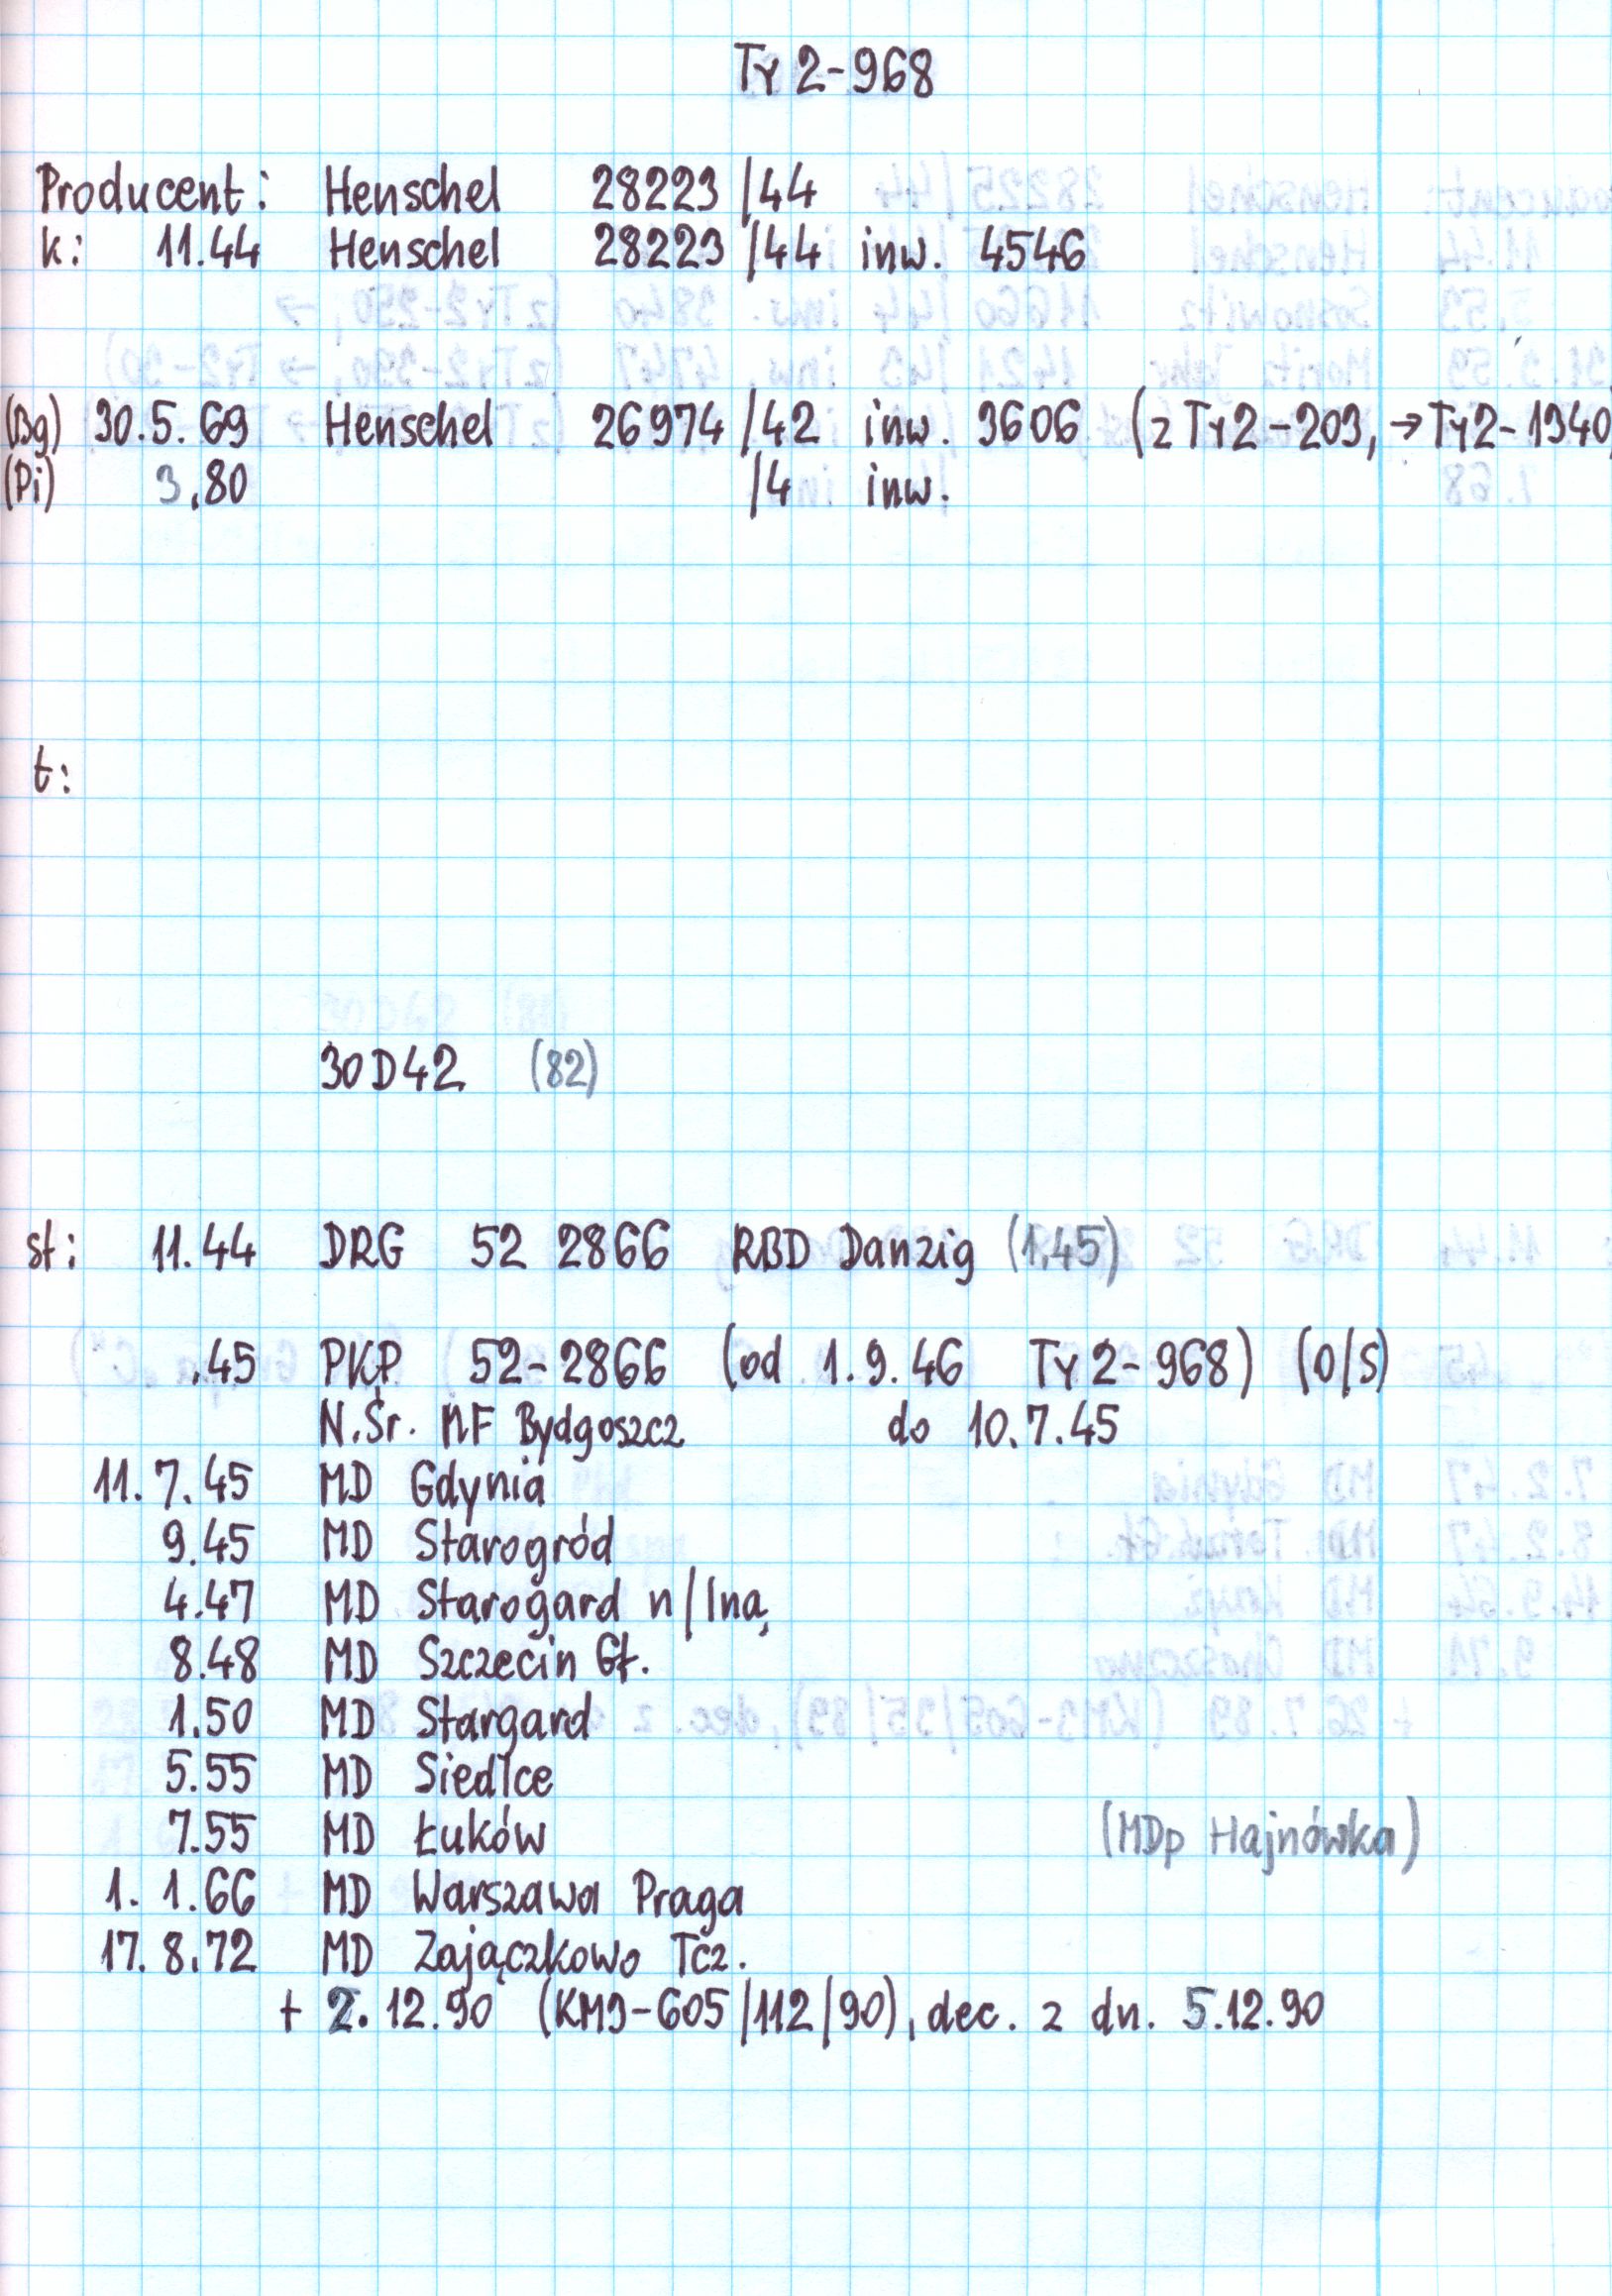 Ty2-968
Producent: Henschel 28223/44
k: 11.44 Henschel 28223/44 inw. 4546
(Bg) 30.5.69 Henschel 26974/42 inw. 3606 (z Ty2-203, →Ty2-1340)
(Pi) 3.80 /4 inw.
t:
30D42 (82)
st: 11.44 DRG 52 2866 RBD Danzig (1.45)
.45 PKP 52-2866 (od 1.9.46 Ty2-968) (O/S)
N.Śr. MF Bydgoszcz do 10.7.45
11.7.45 MD Gdynia
9.45 MD Starogród
4.47 MD Starogard n/Iną
8.48 MD Szczecin Gł.
1.50 MD Stargard
5.55 MD Siedlce
7.55 MD Łuków (MDp Hajnówka)
1.1.66 MD Warszawa Praga
17.8.72 MD Zajączkowo Tcz.
+ 2.12.90 (KM9-605/112/90), dec. z dn. 5.12.90